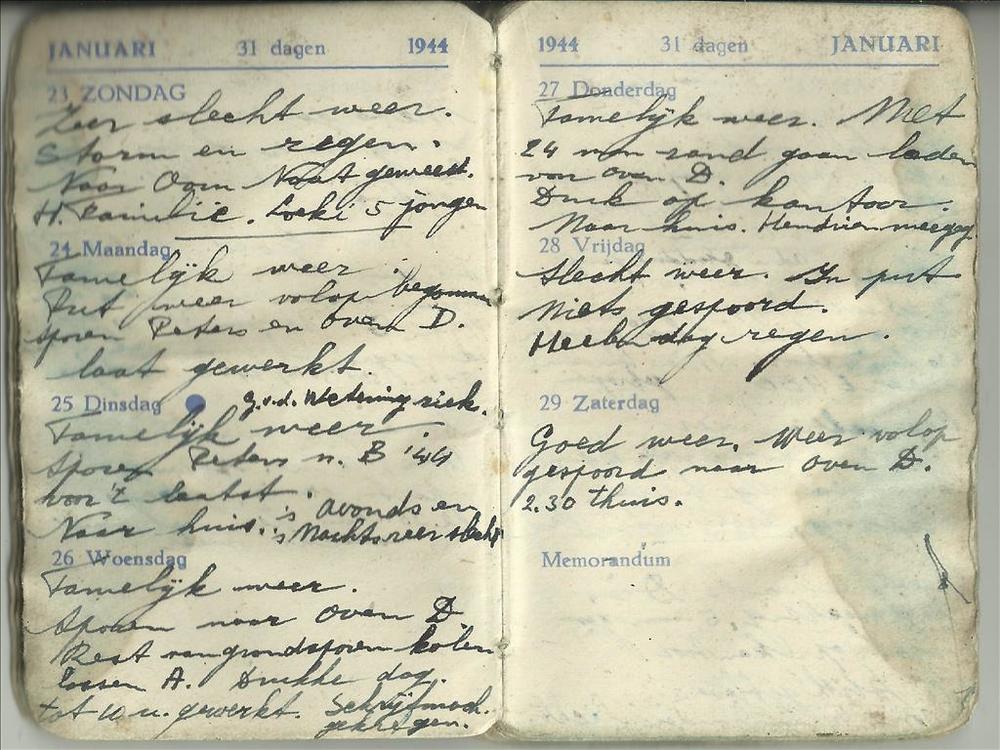 JANUARI 31 dagen 1944
23 ZONDAG
Zeer slecht weer.
Storm en regen.
Naar Oom Naat geweest.
H. Familie. Loeki 5 jongen
24 Maandag
Tamelijk weer.
Put weer volop begonnen
sporen Peters en Oven D.
laat gewerkt.
25 Dinsdag g.v.d. Wetering ziek.
Tamelijk weer
Sporen Peters n. B '44
voor 't laatst.
Naar huis. 's avonds en
's Nachts zeer slecht
26 Woensdag
Tamelijk weer.
Sporen naar Oven D.
Rest van grondsporen kolen
lossen A. Drukke dag.
tot 10 u. gewerkt. Schrijfmach.
gekregen.
1944 31 dagen JANUARI
27 Donderdag
Tamelijk weer. Met
24 man zand gaan laden
voor oven D.
Druk op kantoor.
Naar huis. Hendrien
28 Vrijdag
Slecht weer. In put
niets gespoord.
Heele dag regen.
29 Zaterdag
Goed weer. Weer volop
gespoord naar Oven D.
2.30 thuis.
Memorandum